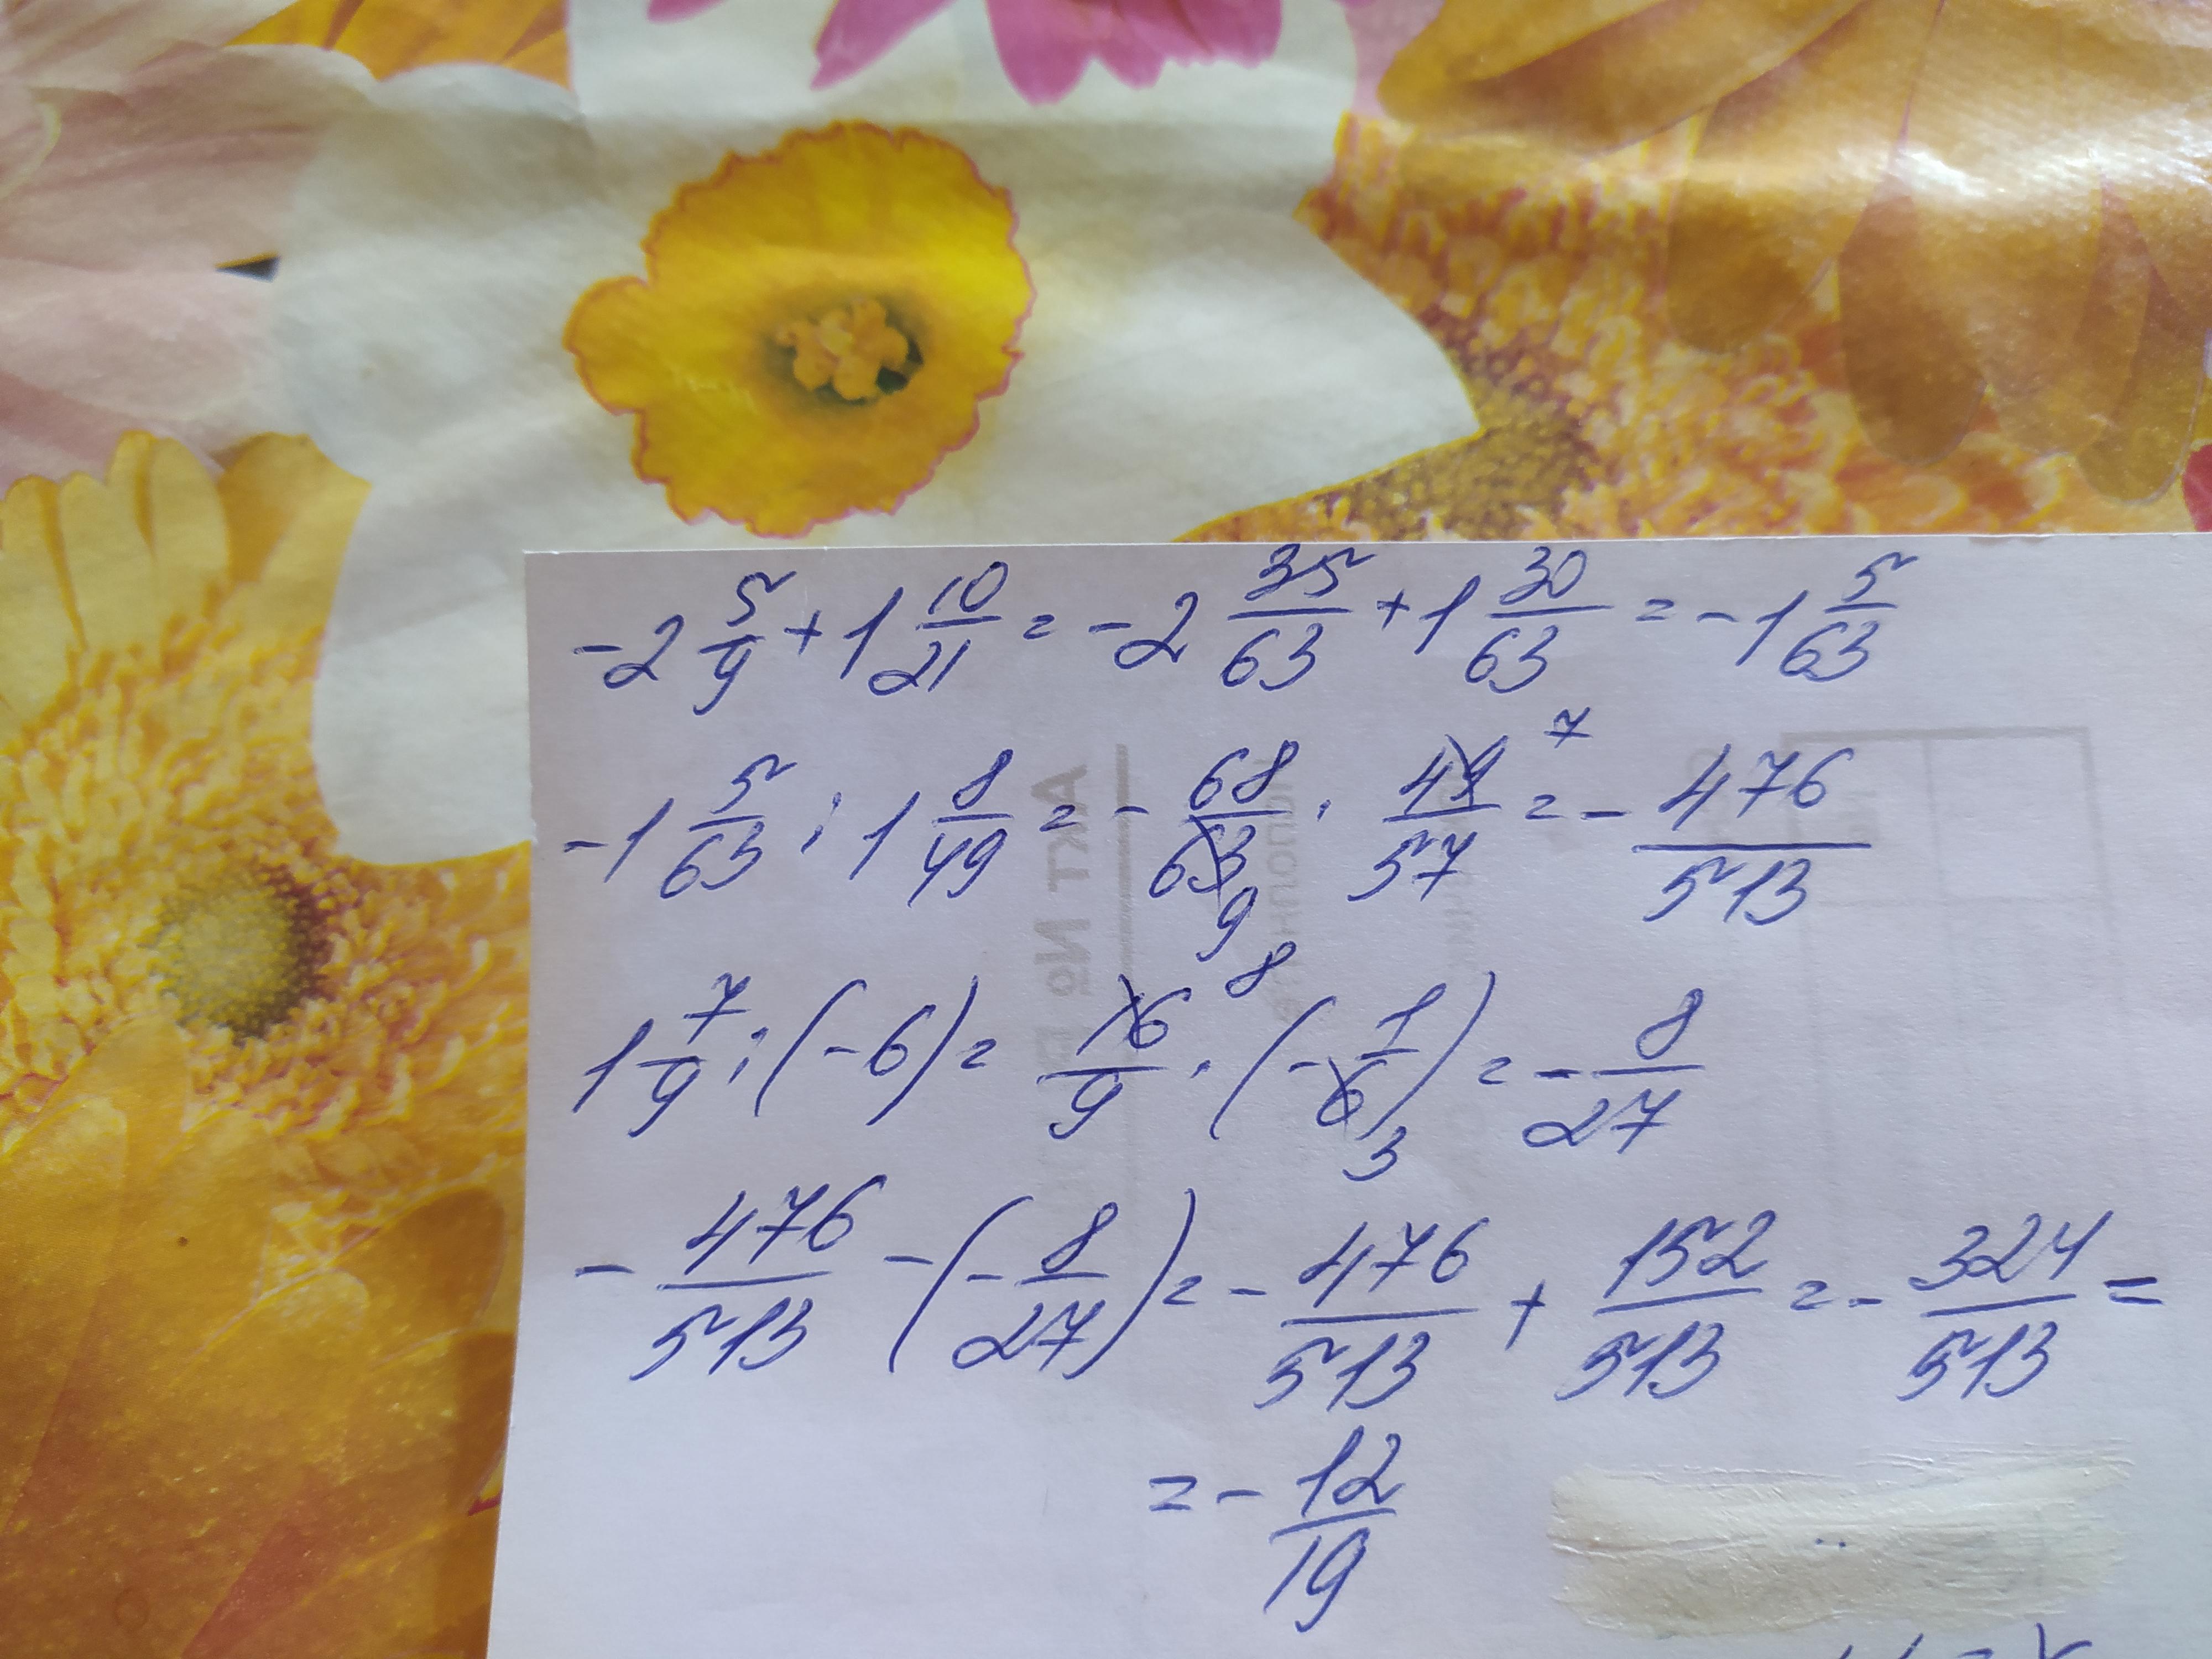 -2 5/9 + 1 10/21 = -2 35/63 + 1 30/63 = -1 5/63
-1 5/63 : 1 8/49 = - 68/63 9 · 49/57 7 = - 476/513
1 7/9 : (-6) = 16/9 8 · (- 1/6 3) = - 8/27
- 476/513 - (- 8/27) = - 476/513 + 152/513 = - 324/513 =
= - 12/19
Акт №